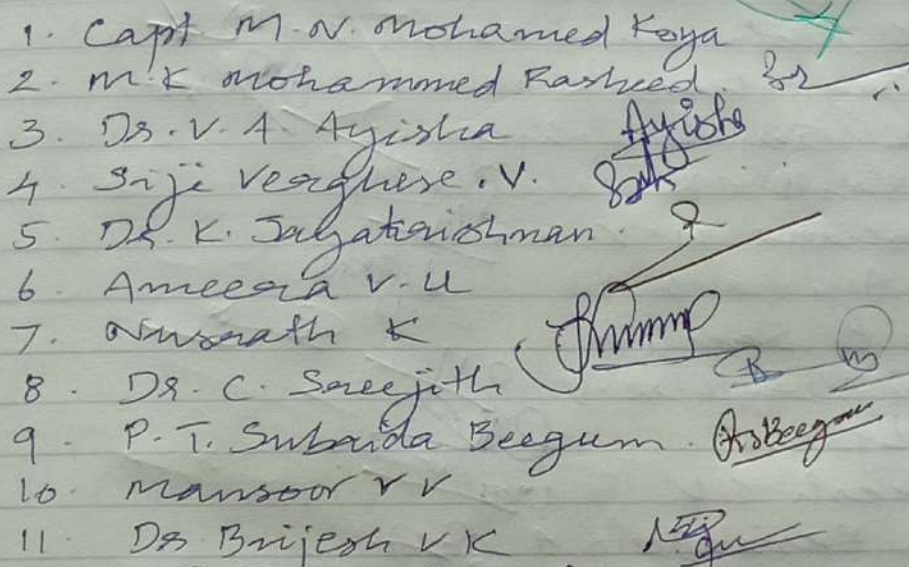 1. Capt M.N. Mohamed Koya
2. M.K Mohammed Rasheed.
3. Dr. V. A. Ayisha Ayisha
4. Siji Verghese. V.
5. Dr. K. Jayakrishnan.
6. Ameera V.U
7. Nusrath K
8. Dr. C. Sreejith
9. P.T. Subaida Beegum.
10. Mansoor V V
11. Dr Brijesh V K